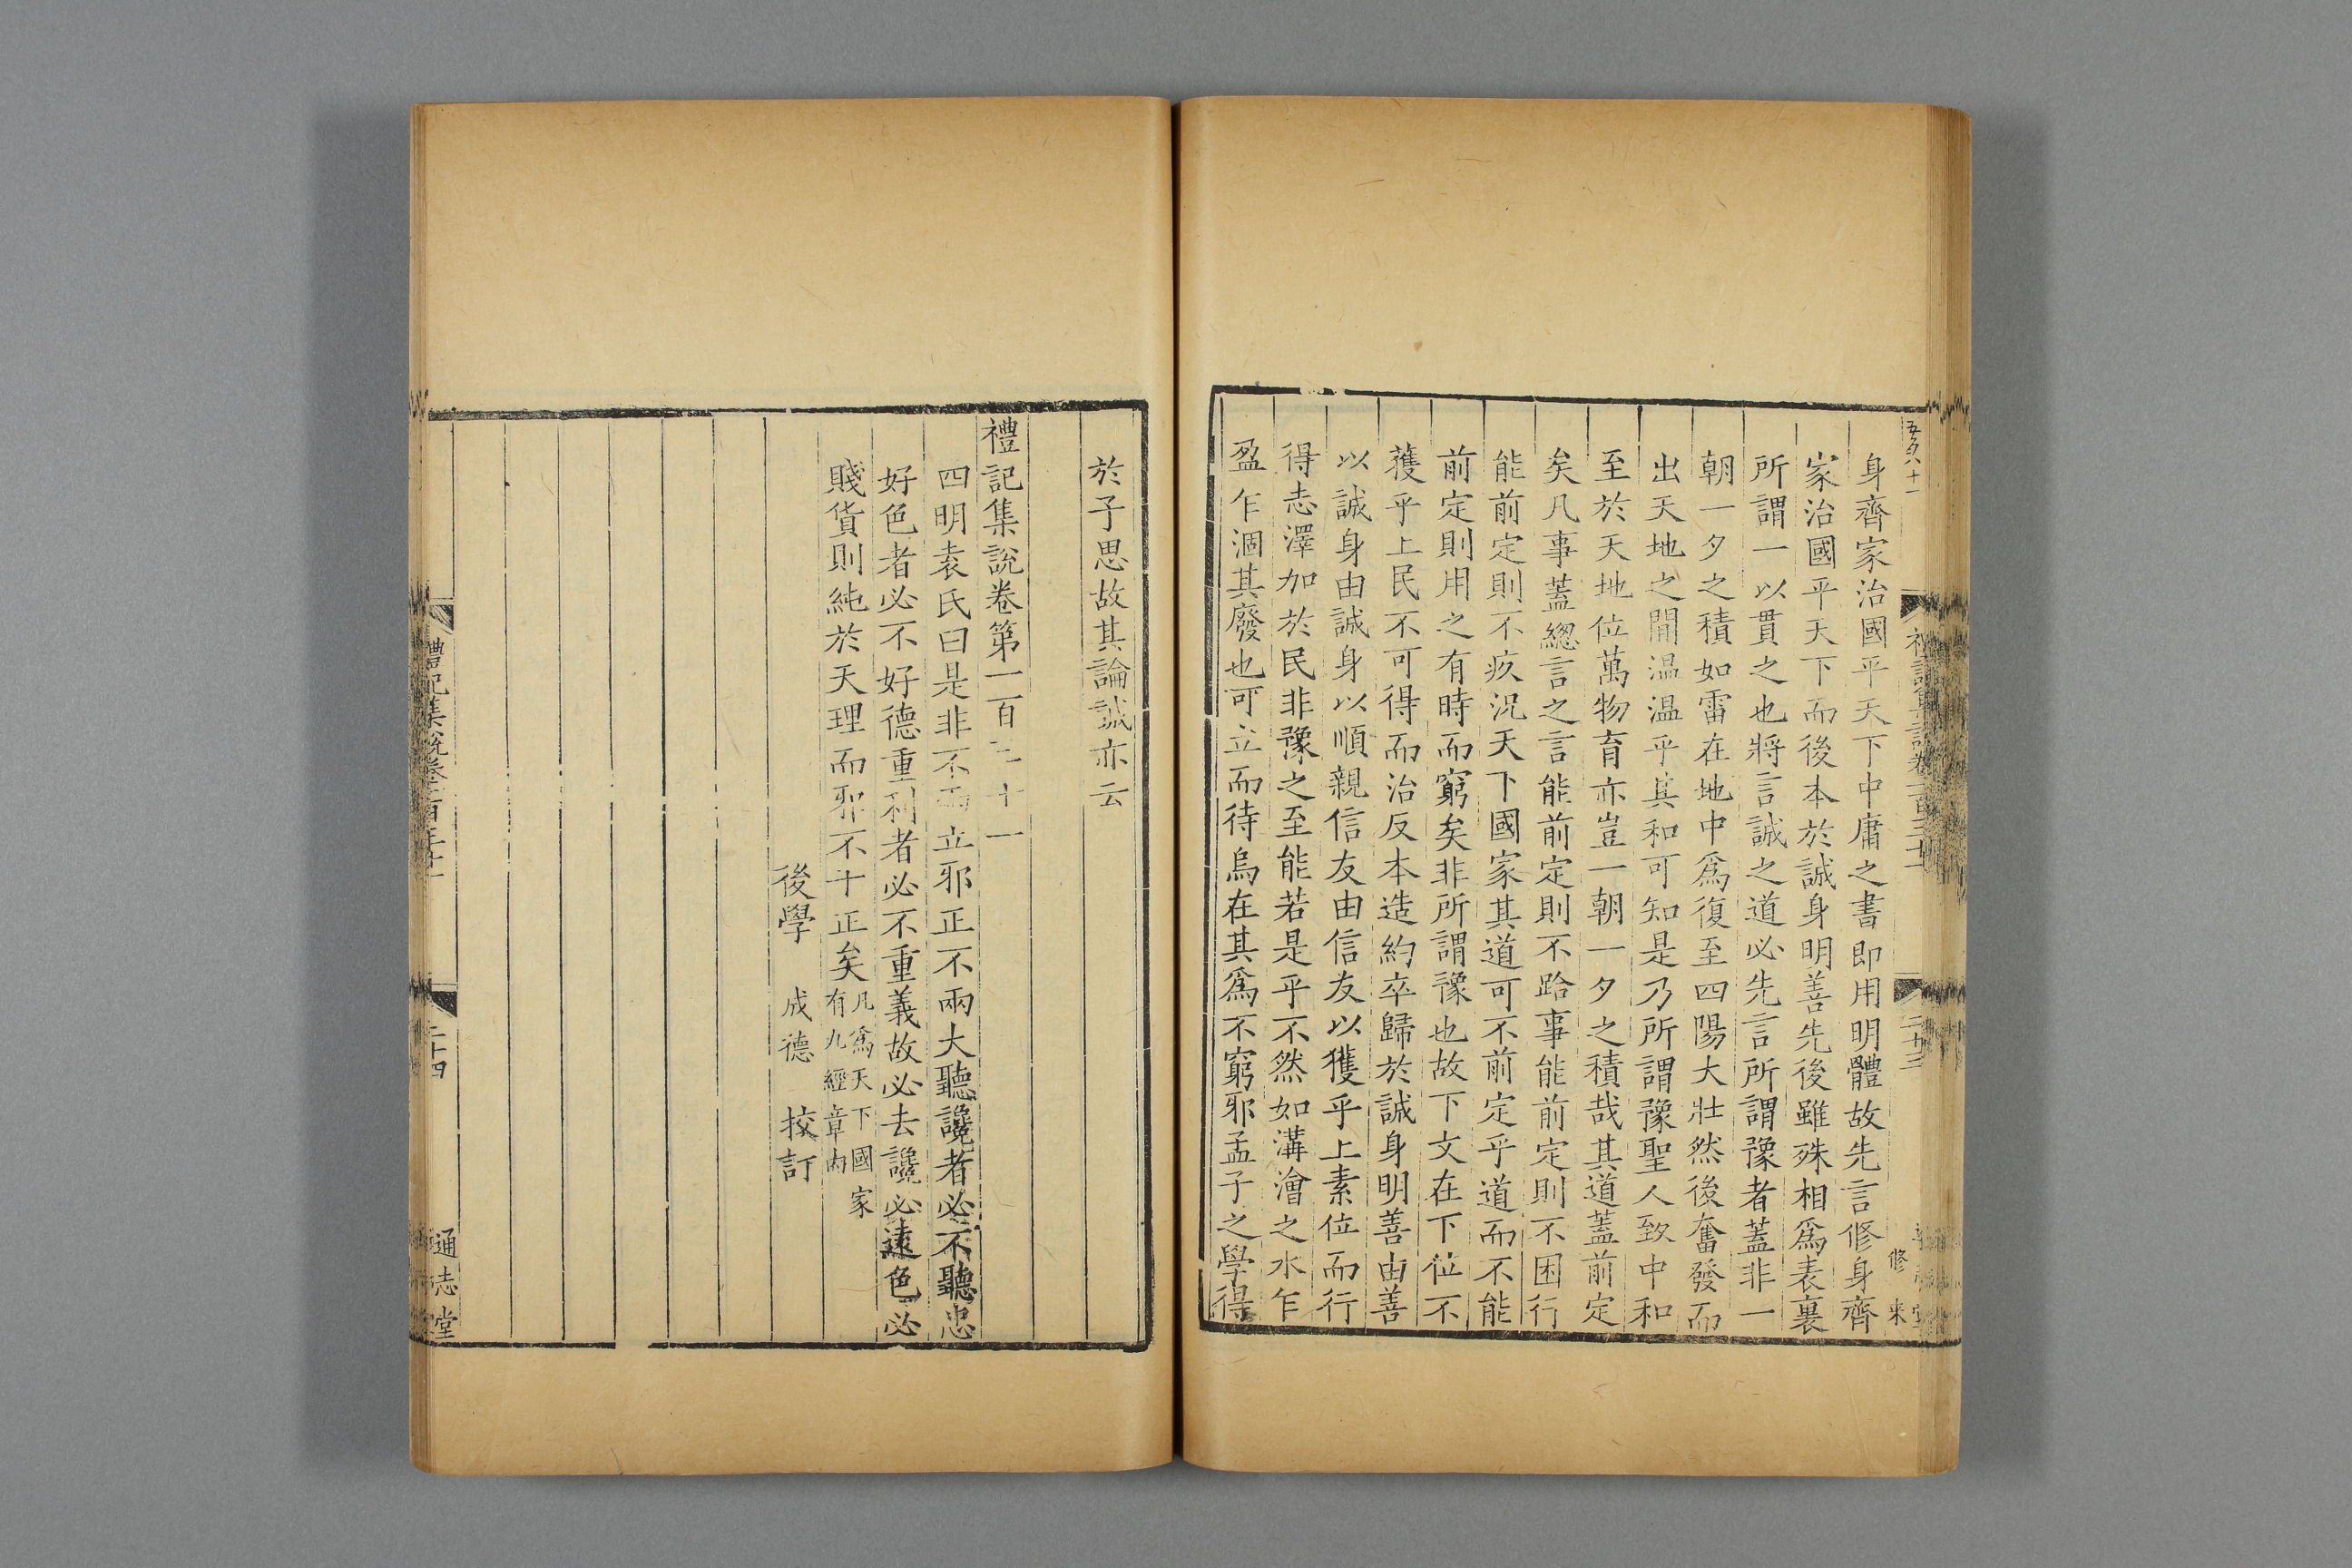 身齊家治國平天下中庸之書即用明體故先言修身齊
家治國平天下而後本於誠身明善先後雖殊相爲表裏
所謂一以貫之也將言誠之道必先言所謂豫者蓋非一
朝一夕之積如雷在地中爲復至四陽大壯然後奮發而
出天地之間温温乎其和可知是乃所謂豫聖人致中和
至於天地位萬物育亦豈一朝一夕之積哉其道蓋前定
矣凡事蓋緫言之言能前定則不跲事能前定則不困行
能前定則不疚況天下國家其道可不前定乎道而不能
前定則用之有時而窮矣非所謂豫也故下文在下位不
獲乎上民不可得而治反本造約卒歸於誠身明善由善
以誠身由誠身以順親信友由信友以獲乎上素位而行
得志澤加於民非豫之至能若是乎不然如溝澮之水乍
盈乍涸其廢也可立而待烏在其爲不窮邪孟子之學得
二十三
修 來
於子思故其論誠亦云
禮記集說卷第一百三十一
四明袁氏曰是非不兩立邪正不兩大聽讒者必不聽忠
好色者必不好德重利者必不重義故必去讒必遠色必
賤貨則純於天理而邪不干正矣凡爲天下國家
有九經章内
後學 成德 挍訂
禮記集說卷一百三十一
二十四
通志堂